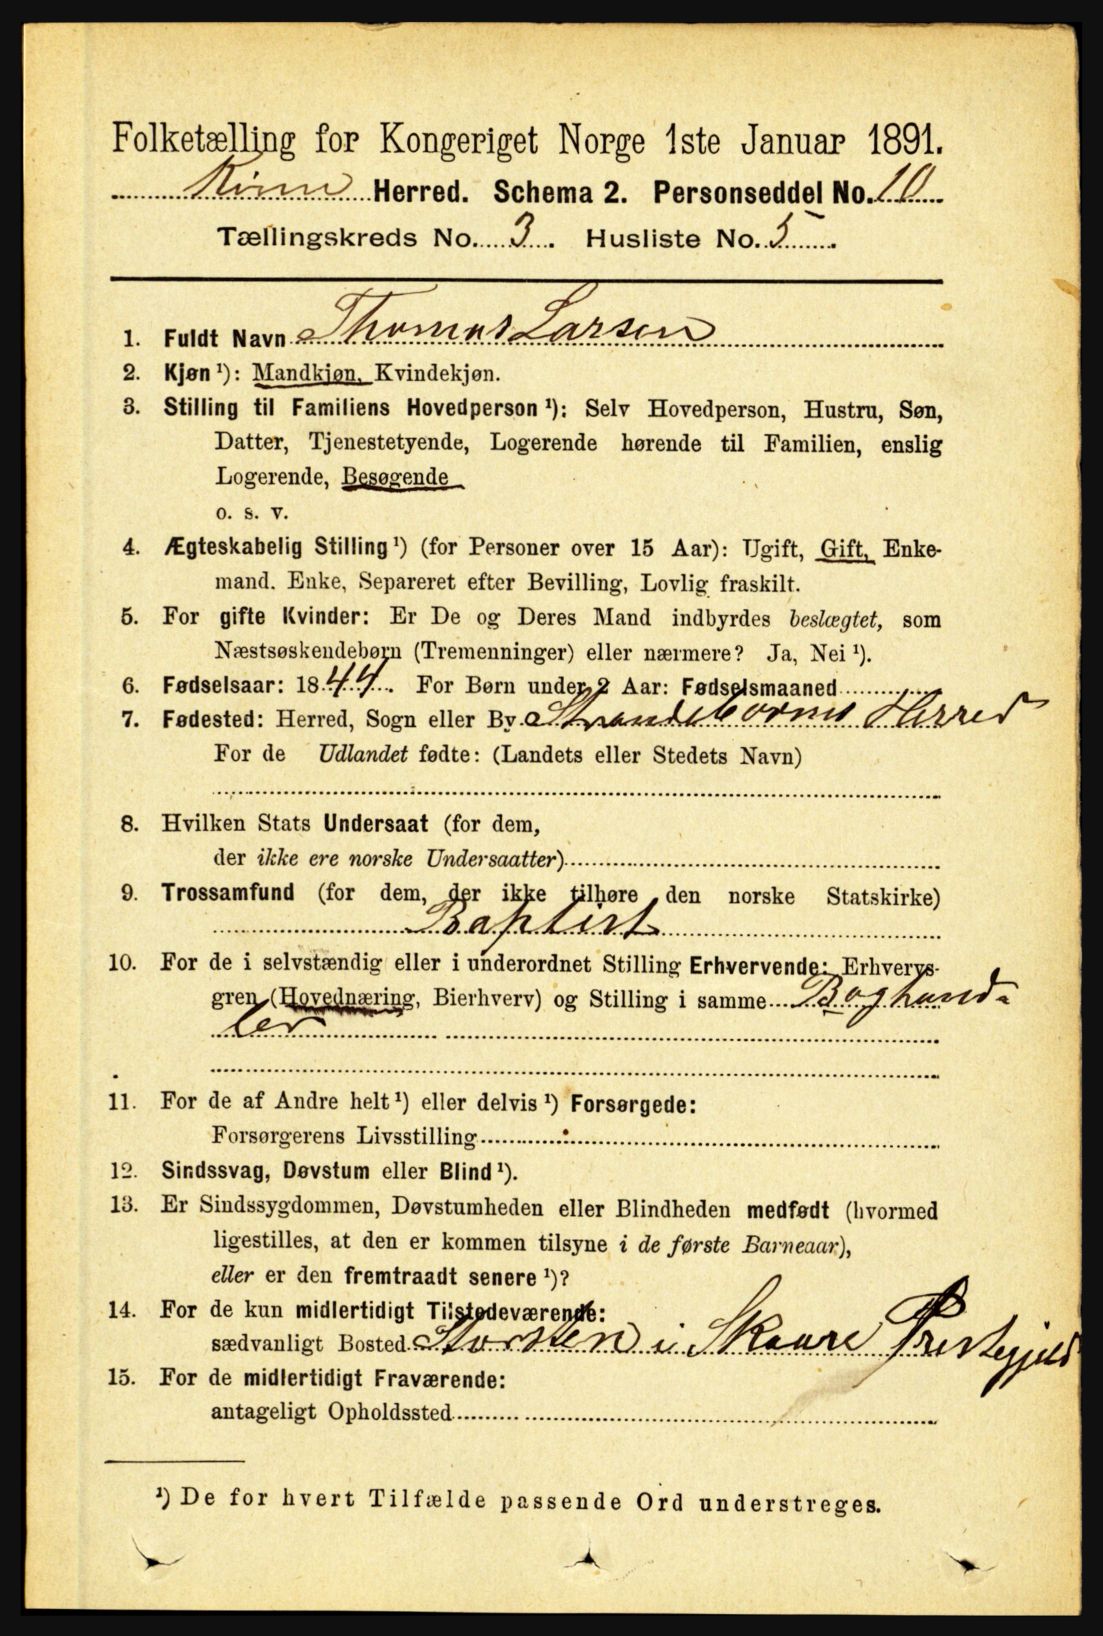 Folketælling for Kongeriget Norge 1ste Januar 1891.
Kinn Herred. Schema 2. Personseddel No. 10
Tællingskreds No. 3. Husliste No. 5.
1. Fuldt Navn Thomas Larsen
2. Kjøn ¹): Mandkjøn, Kvindekjøn.
3. Stilling til Familiens Hovedperson ¹): Selv Hovedperson, Hustru, Søn,
Datter, Tjenestetyende, Logerende hørende til Familien, enslig
Logerende, Besøgende
o. s. v.
4. Ægteskabelig Stilling ¹) (for Personer over 15 Aar): Ugift, Gift, Enke-
mand. Enke, Separeret efter Bevilling, Lovlig fraskilt.
5. For gifte Kvinder: Er De og Deres Mand indbyrdes beslægtet, som
Næstsøskendebørn (Tremenninger) eller nærmere? Ja, Nei ¹).
6. Fødselsaar: 1844. For Børn under 2 Aar: Fødselsmaaned
7. Fødested: Herred, Sogn eller By Herred
For de Udlandet fødte: (Landets eller Stedets Navn)
8. Hvilken Stats Undersaat (for dem,
der ikke ere norske Undersaatter)
9. Trossamfund (for dem, der ikke tilhøre den norske Statskirke)
Baptist
10. For de i selvstændig eller i underordnet Stilling Erhvervende: Erhvervs-
gren (Hovednæring, Bierhverv) og Stilling i samme Boghand-
ler
11. For de af Andre helt ¹) eller delvis ¹) Forsørgede:
Forsørgerens Livsstilling
12. Sindssvag, Døvstum eller Blind ¹).
13. Er Sindssygdommen, Døvstumheden eller Blindheden medfødt (hvormed
ligestilles, at den er kommen tilsyne i de første Barneaar),
eller er den fremtraadt senere ¹)?
14. For de kun midlertidigt Tilstedeværende:
sædvanligt Bosted i Skaare Prestegjeld
15. For de midlertidigt Fraværende:
antageligt Opholdssted
¹) De for hvert Tilfælde passende Ord understreges.